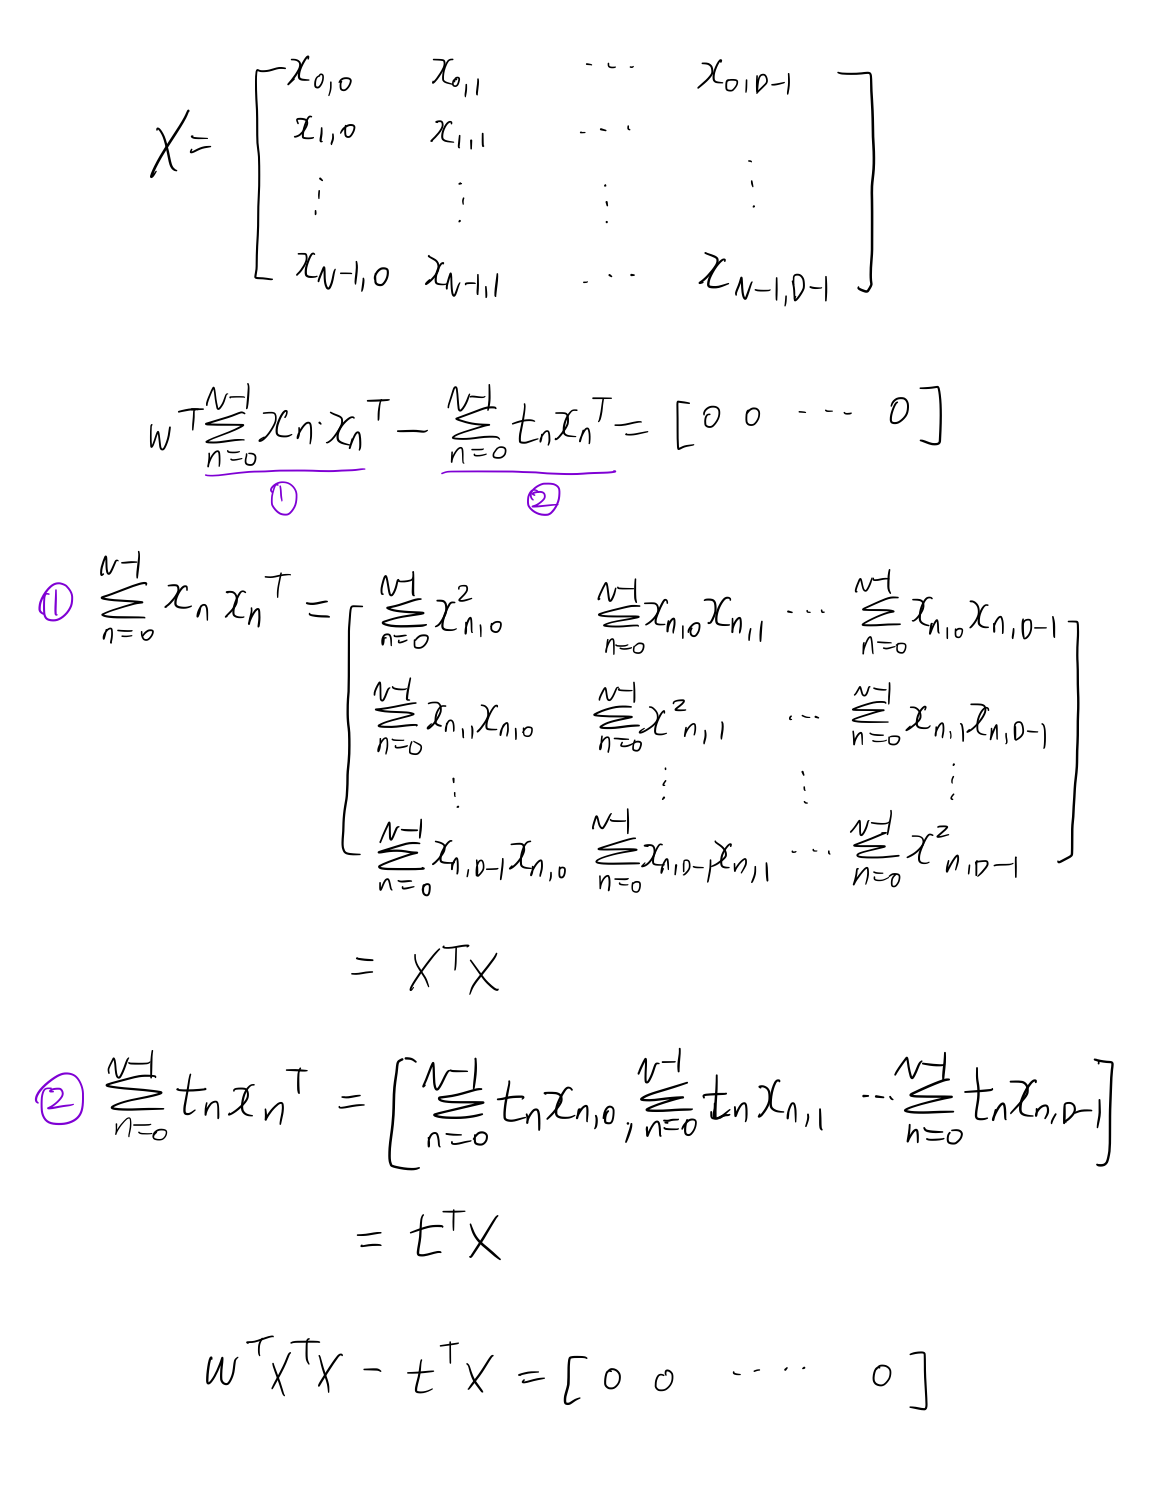 X = [ x₀,₀ x₀,₁ ··· x₀,D-1
x₁,₀ x₁,₁ ···
⋮ ⋮ ⋮ ⋮
x_N-1,0 x_N-1,1 ··· x_N-1,D-1 ]
w^T Σ_{n=0}^{N-1} x_n·x_n^T − Σ_{n=0}^{N-1} t_n x_n^T = [ 0 0 ··· 0 ]
① ②
① Σ_{n=0}^{N-1} x_n x_n^T = [ Σ_{n=0}^{N-1} x²_{n,0} Σ_{n=0}^{N-1} x_{n,0} x_{n,1} ··· Σ_{n=0}^{N-1} x_{n,0} x_{n,D-1}
Σ_{n=0}^{N-1} x_{n,1} x_{n,0} Σ_{n=0}^{N-1} x²_{n,1} ··· Σ_{n=0}^{N-1} x_{n,1} x_{n,D-1}
⋮ ⋮ ⋮ ⋮
Σ_{n=0}^{N-1} x_{n,D-1} x_{n,0} Σ_{n=0}^{N-1} x_{n,D-1} x_{n,1} ··· Σ_{n=0}^{N-1} x²_{n,D-1} ]
= X^T X
② Σ_{n=0}^{N-1} t_n x_n^T = [ Σ_{n=0}^{N-1} t_n x_{n,0} , Σ_{n=0}^{N-1} t_n x_{n,1} ··· Σ_{n=0}^{N-1} t_n x_{n,D-1} ]
= t^T X
w^T X^T X − t^T X = [ 0 0 ···· 0 ]